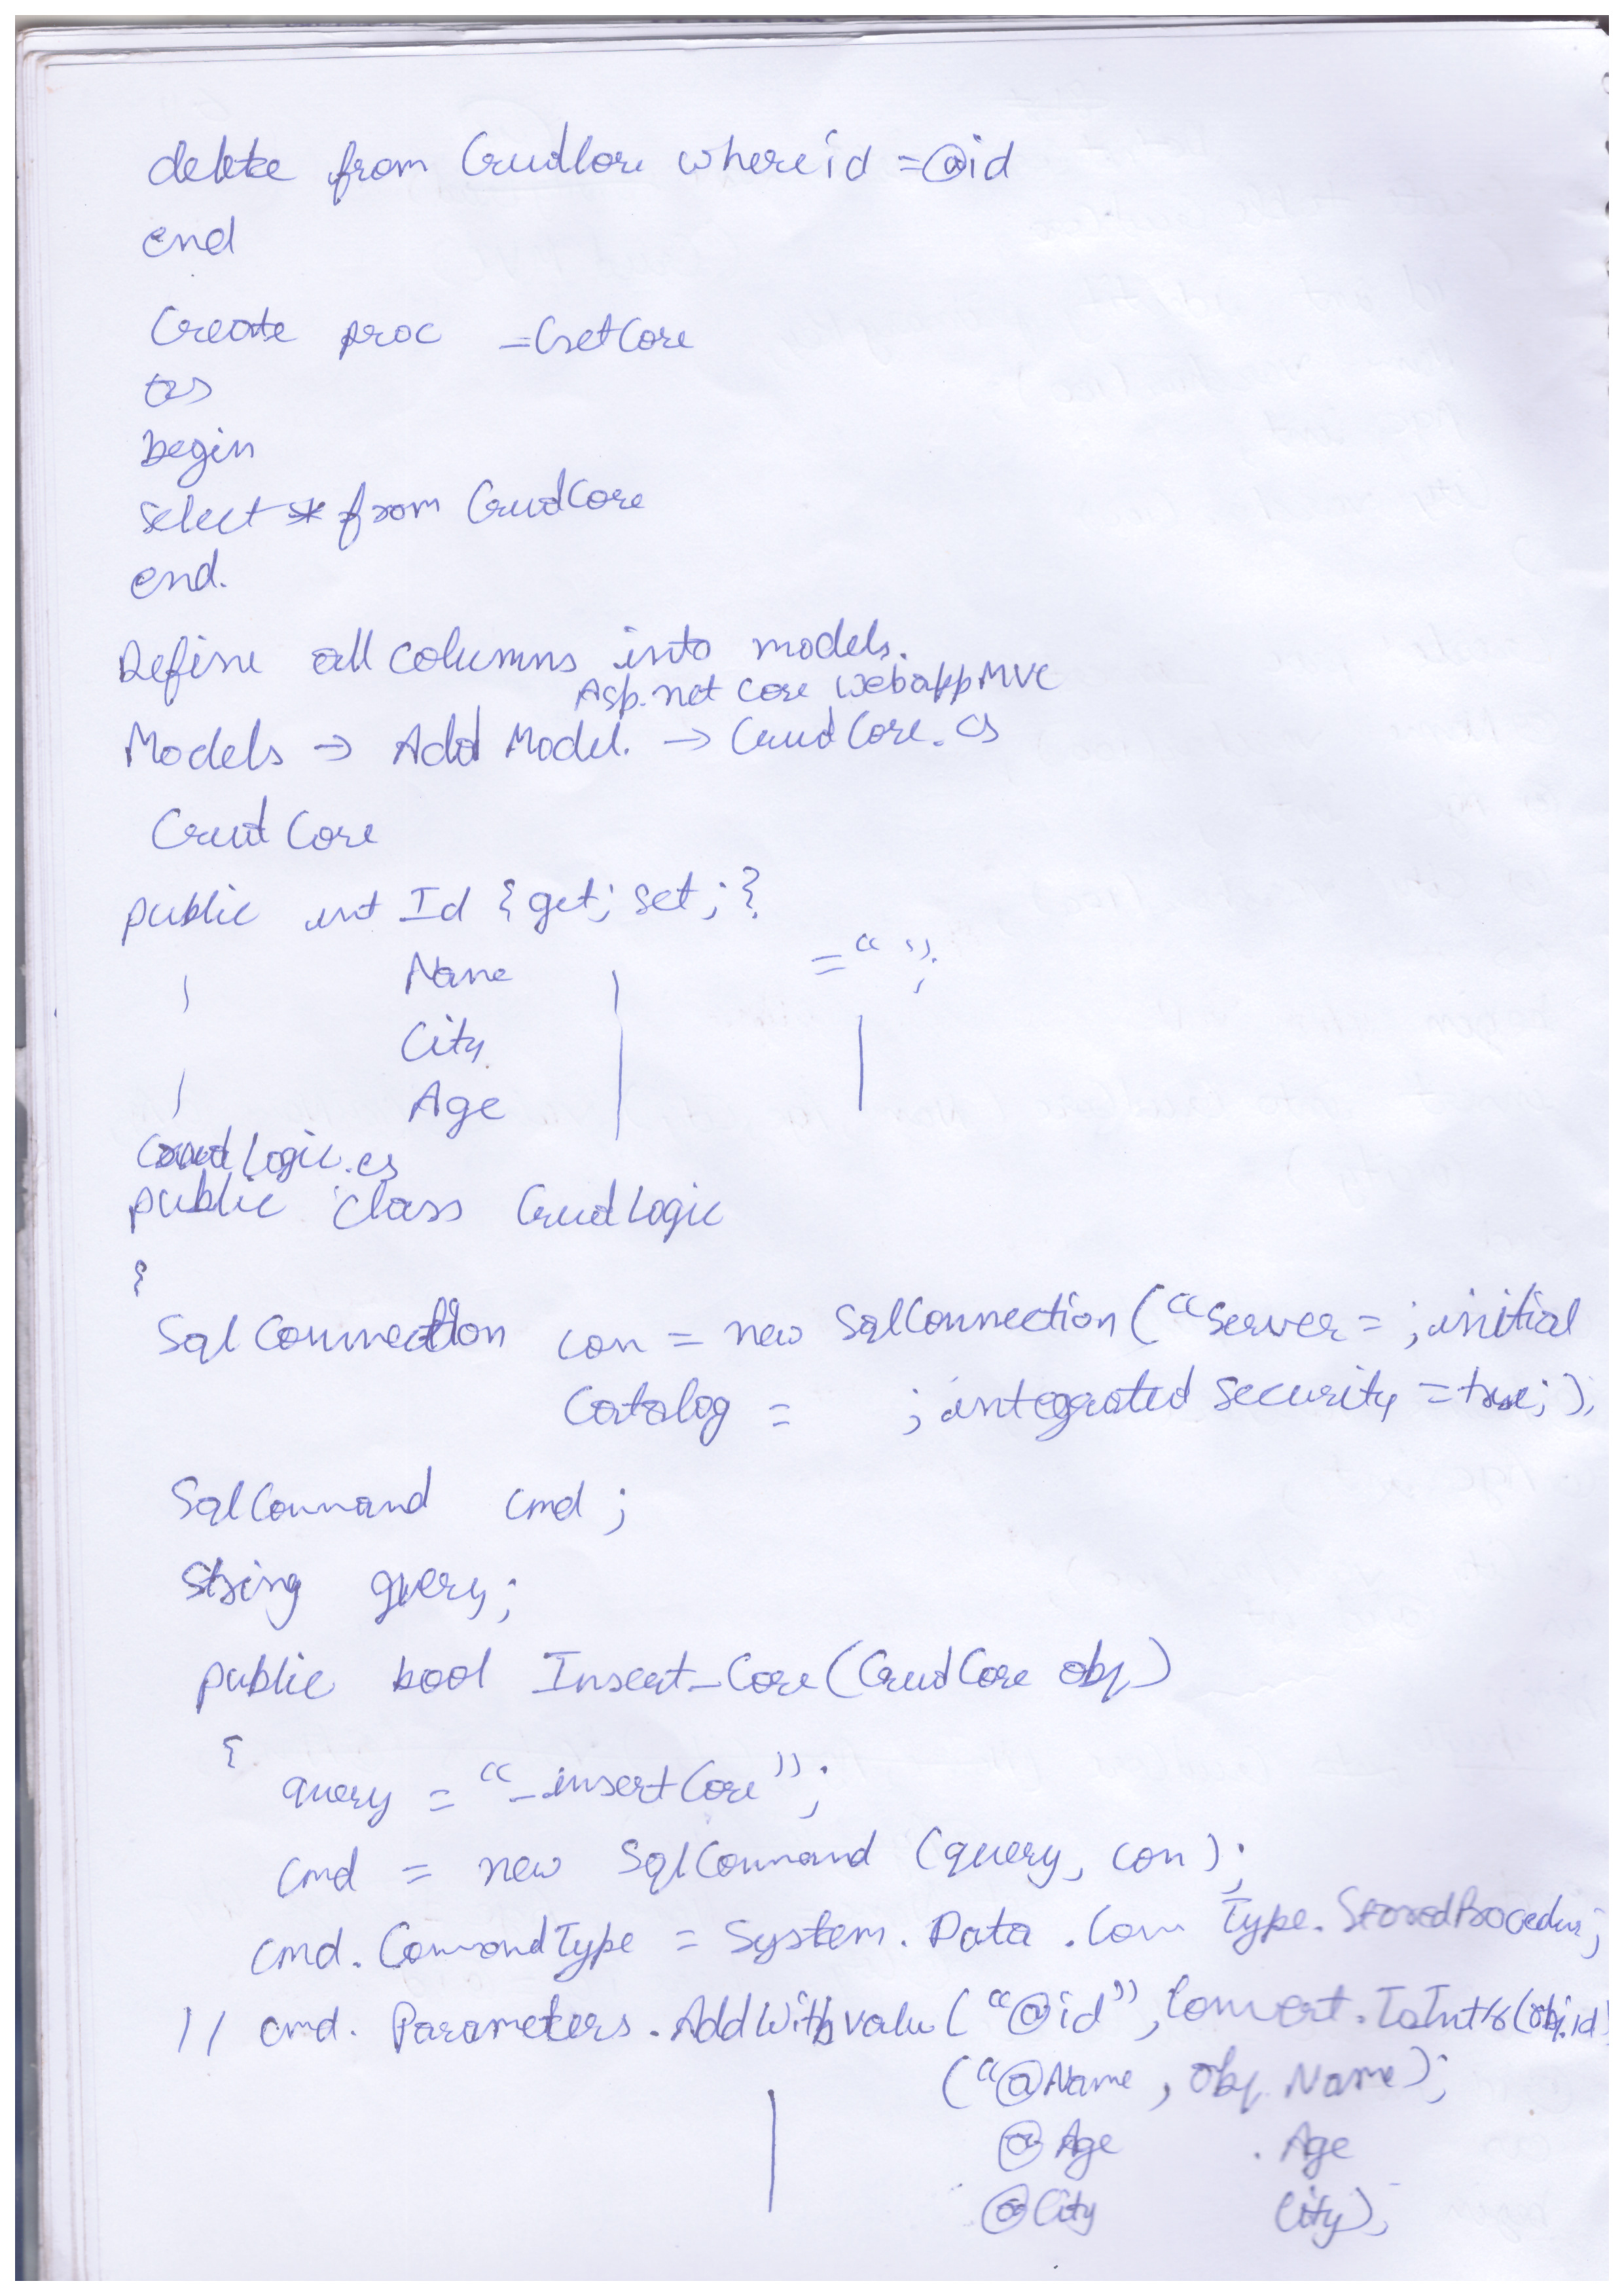 delete from CrudCore where id = @id
end
Create proc _GetCore
as
begin
select * from CrudCore
end.
Define all columns into models.
Asp.net Core WebappMVC
Models → Add Model. → CrudCore.cs
CrudCore
public int Id { get; set; }
Name = " ";
City
Age
CrudLogic.cs
public class CrudLogic
{
SqlConnection con = new SqlConnection("Server = ; initial
Catalog = ; integrated security = true; );
SqlCommand cmd ;
String query;
public bool Insert_Core(CrudCore obj)
{
query = "_insertCore";
cmd = new SqlCommand (query, con);
cmd. CommandType = System. Data . Com Type. StoredProcedur;
// cmd. Parameters. AddWithvalu( "@id", Convert.ToInt16(obj.id)
("@Name , obj. Name);
@Age . Age
@City City);